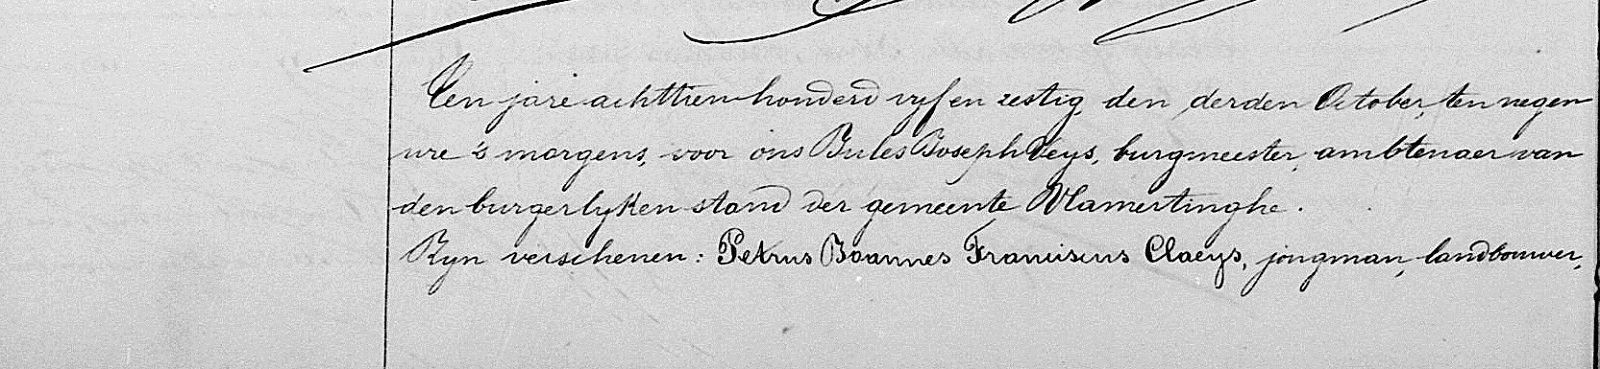 Ten jare achttien honderd vyf en zestig, den derden October, ten negen
ure 's morgens, voor ons Jules Joseph Veys, burgmeester, ambtenaer van
den burgerlyken stand der gemeente Vlamertinghe.
Zyn verschenen: Petrus Joannes Franciscus Claeys, jongman, landbouwer,